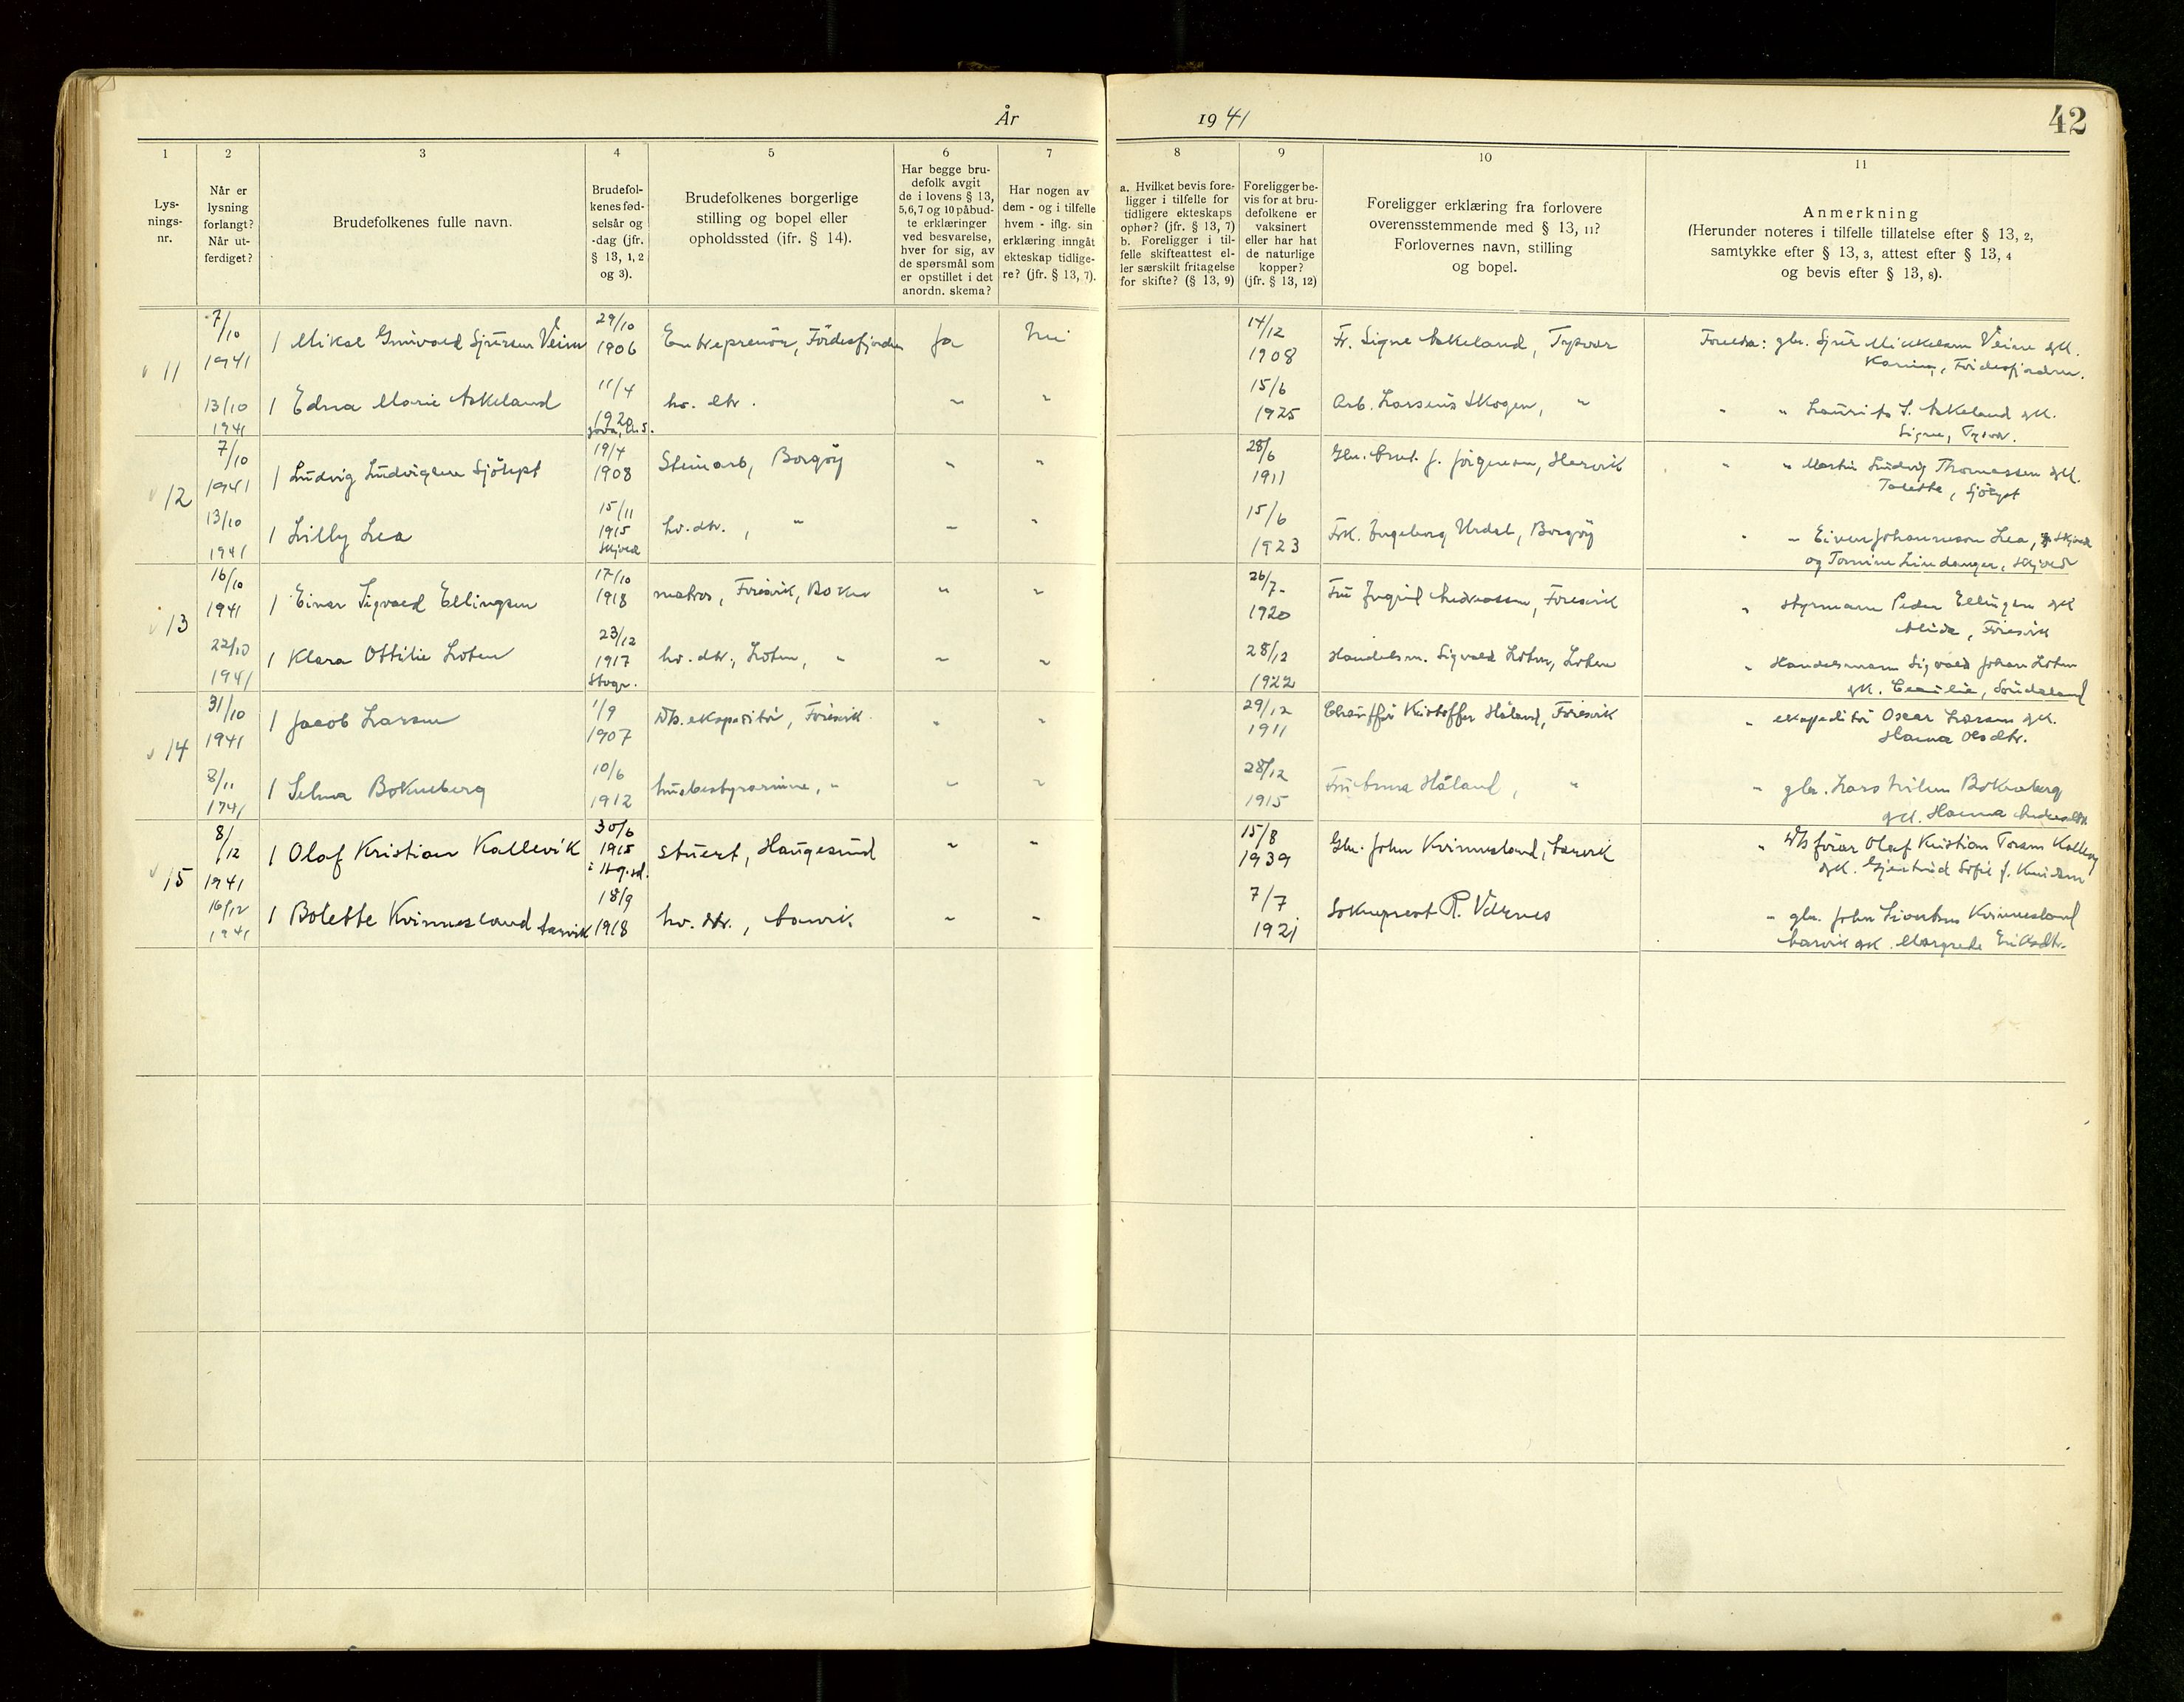 År 1941
42
1
2
3
4
5
6
7
8
9
10
11
Lys-
nings-
nr.
Når er
lysning
forlangt?
Når ut-
ferdiget?
Brudefolkenes fulle navn.
Brudefol-
kenes fød-
selsår og
-dag (jfr.
§ 13, 1, 2
og 3).
Brudefolkenes borgerlige
stilling og bopel eller
opholdssted (jfr. § 14).
Har begge bru-
defolk avgit
de i lovens § 13,
5, 6, 7 og 10 påbud-
te erklæringer
ved besvarelse,
hver for sig, av
de spørsmål som
er opstillet i det
anordn. skema?
Har nogen av
dem - og i tilfelle
hvem - iflg. sin
erklæring inngåt
ekteskap tidlige-
re? (jfr. § 13, 7).
a. Hvilket bevis fore-
ligger i tilfelle for
tidligere ekteskaps
ophør? (jfr. § 13, 7)
b. Foreligger i til-
felle skifteattest el-
ler særskilt fritagelse
for skifte? (§ 13, 9)
Foreligger be-
vis for at bru-
defolkene er
vaksinert
eller har hat
de naturlige
kopper?
(jfr. § 13, 12)
Foreligger erklæring fra forlovere
overensstemmende med § 13, 11?
Forlovernes navn, stilling
og bopel.
Anmerkning
(Herunder noteres i tilfelle tillatelse efter § 13, 2,
samtykke efter § 13, 3, attest efter § 13, 4
og bevis efter § 13, 8).
11
7/10
1941
1 Mikal Sjursen Veim
29/10
1906
Entreprenör, Fördesfjorden
Ja
Nei
14/12
1908
Fr. Signe Askeland, Tysvær
Foreldra: gbr. Sjur Mikkelsen Veim gk.
Karina, Fördesfjorden.
13/10
1941
1 Edna Marie Askeland
11/4
1920
hv. dtr.
"
"
15/6
1925
Arb. Larsenius Skogen, "
" " Laurits S. Askeland gk.
Signe, Tysvær.
12
7/10
1941
1 Ludvig Ludvigsen Sjöhept
19/4
1908
Steinarb, Borgöy
"
"
28/6
1911
Gbr. J. Jörgensen, Hervik
" " Martin Ludvig Thomassen gk.
13/10
1941
1 Lilly Lea
15/11
1915
Skjold
hv. dtr., "
"
"
15/6
1923
Frk. Ingeborg Urdal, Borgöy
" " Johannesen Lea, Skjold
og Tomine Lindanger, Skjold
13
16/10
1941
1 Einar Sigvald Ellingsen
17/10
1918
matros, Föresvik, Bokn
"
"
26/7
1920
Fru Ingrid Andreassen, Föresvik
" styrmann Peder Ellingsen gk
Alida, Föresvik
22/10
1941
1 Klara Ottilie Loten
23/12
1917
hv. dtr., Loten, "
"
"
28/12
1922
Handelsm. Sigvald Loten, Loten
" Handelsmann Sigvald Johan Loten
gk. Cecilie,
14
31/10
1941
1 Jacob Larsen
1/9
1907
D/s. ekspeditör, Föresvik
"
"
29/12
1911
Chaufför Kristoffer Håland, Föresvik
" ekspeditör Oscar Larsen gk.
Hanna Olsdtr.
8/11
1941
1 Selma Bokneberg
10/6
1912
husbestyrarinne, "
"
"
28/12
1915
Fru Anna Håland, "
" gbr. Lars Nilsen Bokneberg
gk. Hanna
15
8/12
1941
1 Olaf Kristian Kallevik
30/6
1915
i Hgsd.
stuert, Haugesund
"
"
15/8
1939
Gbr. John Kvinnesland, Aarvik
" D/s förar Olaf Kristian Kallevig
gk. Gjertrud Sofie f. Knudsen
16/12
1941
1 Bolette Kvinnesland Aarvik
18/9
1918
hv. dtr., Aarvik
"
"
7/7
1921
Sokneprest R. Vdernes
" gbr. John Kvinnesland
Aarvik gk. Margrete Eriksdtr.